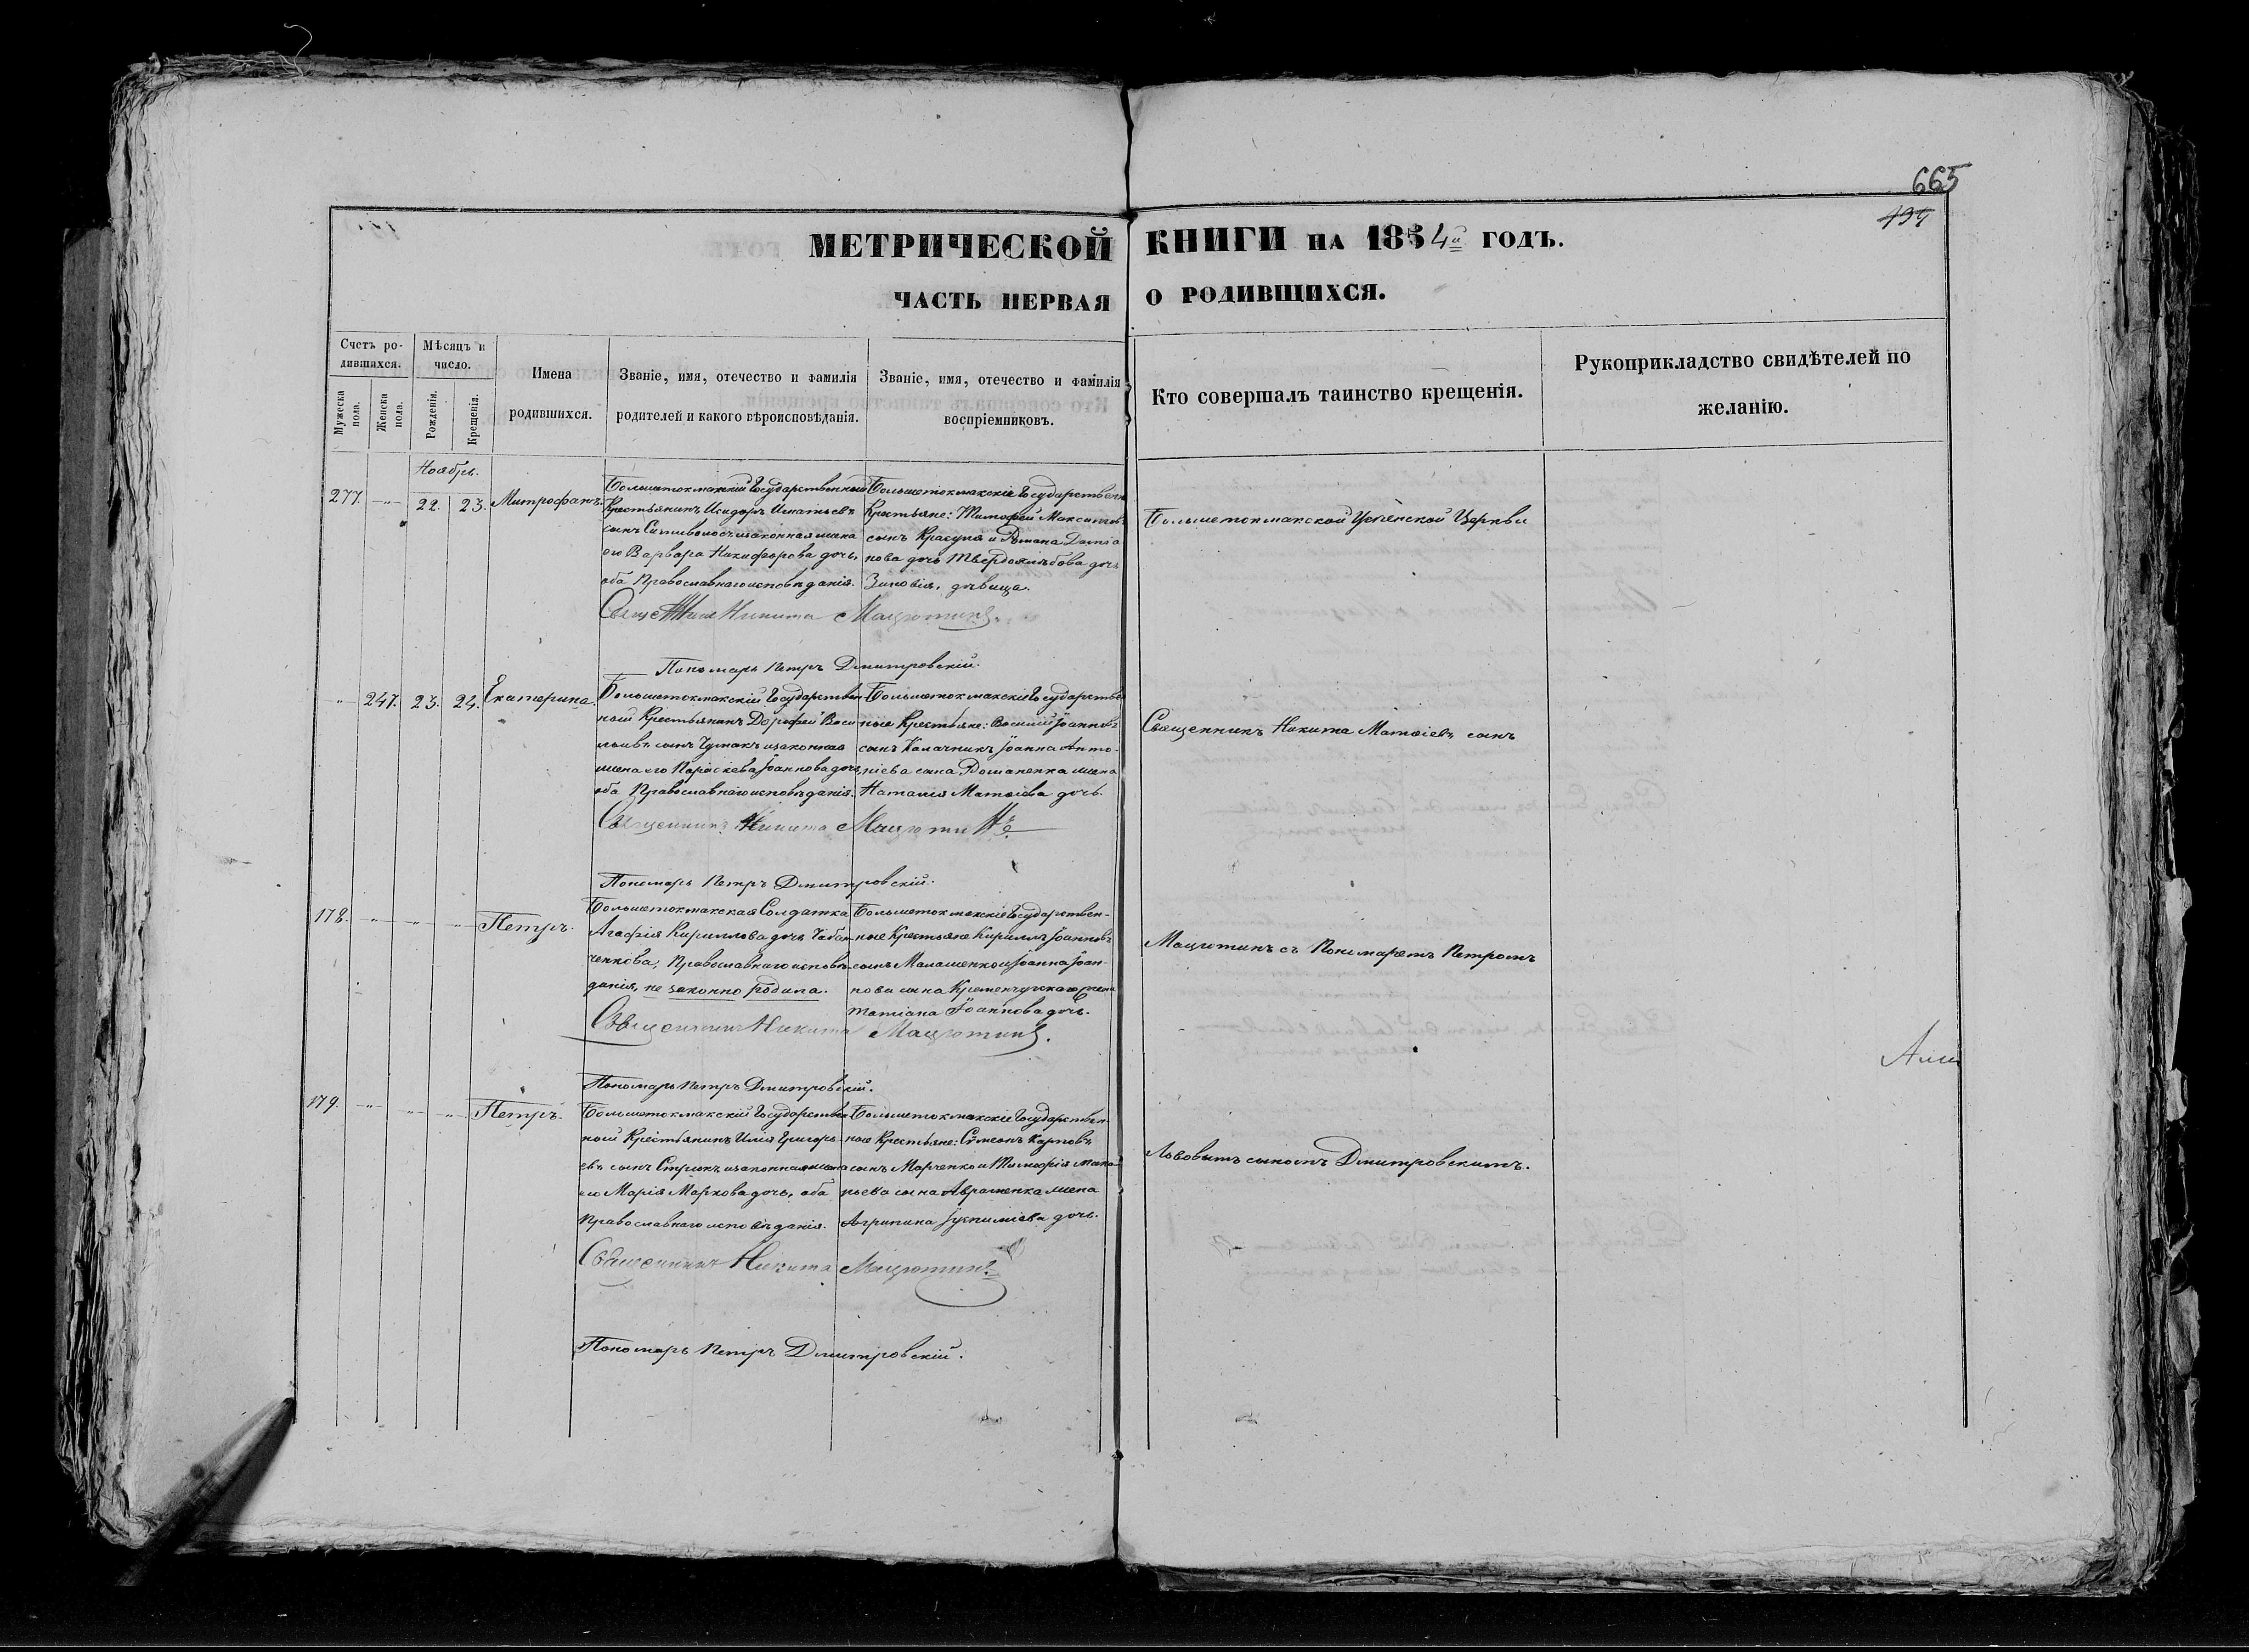 665
494
МЕТРИЧЕСКОЙ КНИГИ НА 1854й ГОДЪ.
ЧАСТЬ ПЕРВАЯ О РОДИВШИХСЯ.
Счетъ ро-
дившихся.
Мужеска пола.
Женска пола.
Мѣсяцъ и
число.
Рожденія.
Крещенія.
Имена
родившихся.
Званіе, имя, отечество и фамилія
родителей и какого вѣроисповѣданія.
Званіе, имя, отечество и фамилія
воспріемниковъ.
Кто совершалъ таинство крещенія.
Рукоприкладство свидѣтелей по
желанію.
Ноябрь.
277. -"- 22. 23. Митрофанъ.
Большетокмакскій Государственный
Крестьянинъ Исидоръ Игнатьевъ
сынъ и законная жена
его Варвара Никифорова дочь,
оба Православнаго исповѣданія.
Большетокмакскіе Государствен
Крестьяне: Тимофей Максимовъ
сынъ Красуля и Романа Даміа
нова дочь
Зиновія, дѣвица.
Никита Мацютинъ.
Пономарь Петръ Дмитровскій.
-"- 247. 23. 24. Екатерина.
Большетокмакскій Государствен
ный Крестьянинъ Дорофей Васи
льевъ сынъ Чумакъ и законная
жена его Параскева Іоаннова дочь,
оба Православнаго исповѣданія.
Большетокмакскіе Государстве
ные Крестьяне: Василій Іоанновъ
сынъ Калачникъ Іоанна Анто-
ніева сына Романенка жена
Наталія Матѳіева дочь.
Священникъ Никита Мацютинъ
Пономарь Петръ Дмитровскій.
178. -"- -"- -"- Петръ.
Большетокмакская Солдатка
Агафія Кириллова дочь Чабан
ченкова, Православнаго исповѣ
данія, не законно родила.
Большетокмакскіе Государствен-
ные Крестьяне Кириллъ Іоанновъ
сынъ Малашенко и Іоанна Іоан-
нова сына Кременчугскаго жена
Татіана Іоаннова дочь.
Священникъ Никита Мацютинъ.
Пономарь Петръ Дмитровскій.
179. -"- -"- -"- Петръ.
Большетокмакскій Государствен
ный Крестьянинъ Илія Григорь-
евъ сынъ и законная жена
его Марія Маркова дочь, оба
Православнаго исповѣданія.
Большетокмакскіе Государствен
ные Крестьяне: Сѵмеонъ Карповъ
сынъ Марченко и Тимофія Мака-
рьева сына Авраменка жена
Агрипина дочь.
Священникъ Никита Мацютинъ
Пономарь Петръ Дмитровскій.
Большетокмакской Успенской Церкви
Священникъ Никита Матѳіевъ сынъ
Мацютинъ съ Пономаремъ Петромъ
Львовымъ сыномъ Дмитровскимъ.